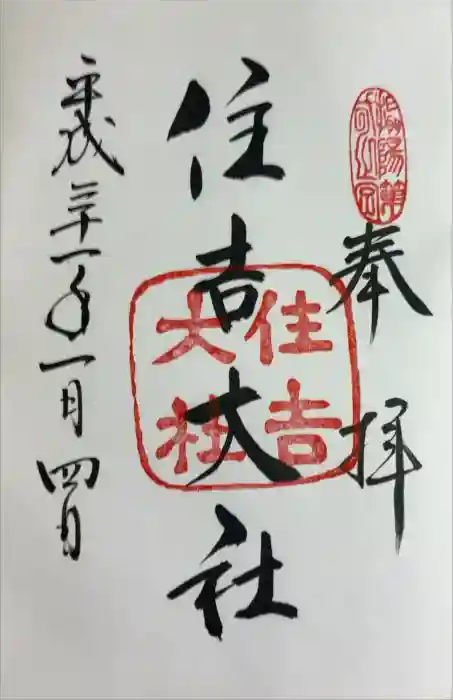 奉拝
住吉大社
住吉
大社
平成三十一年一月四日